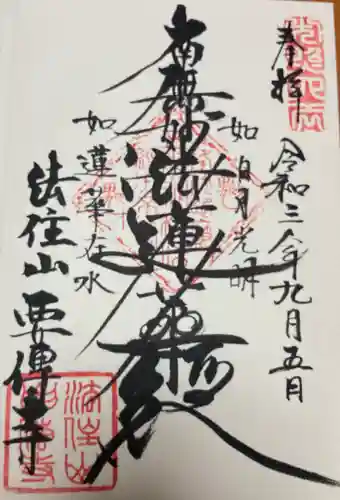 奉拝
令和三年九月五日
如日月光明
南無妙法蓮華経
如蓮華在水
法住山
要傳寺